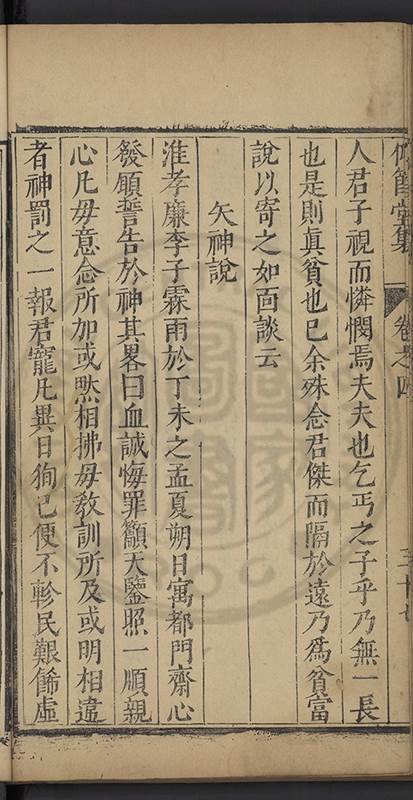 仰節堂集 卷之四 三十七
人君子視而憐憫焉夫夫也乞丐之子乎乃無一長
也是則真貧也已余殊念君傑而隔於遠乃為貧富
說以寄之如面談云
矢神說
淮孝廉李子霖雨於丁未之孟夏朔日寓都門齋心
發願誓告於神其畧曰血誠悔罪籲天鑒照一順親
心凡毋意念所加或默相拂毋教訓所及或明相違
者神罰之一報君寵凡異日狥己便不軫民艱餙虛